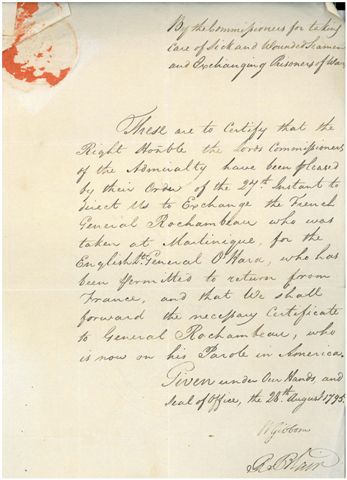 By the Commissioners for taking
Care of Sick and Wounded Seamen
and Exchanging Prisoners of War
These are to Certify that the
Right Honble the Lords Commissioners
of the Admiralty have been pleased
by their Order of the 27th Instant to
direct Us to Exchange the French
General Rochambeau who was
taken at Martinique, for the
English General O'Hara, who has
been permitted to return from
France, and that We shall
forward the necessary Certificate
to General Rochambeau, who
is now on his Parole in America.
Given under Our Hands and
Seal of Office, the 28th August 1795.
Gibbons
R Blair